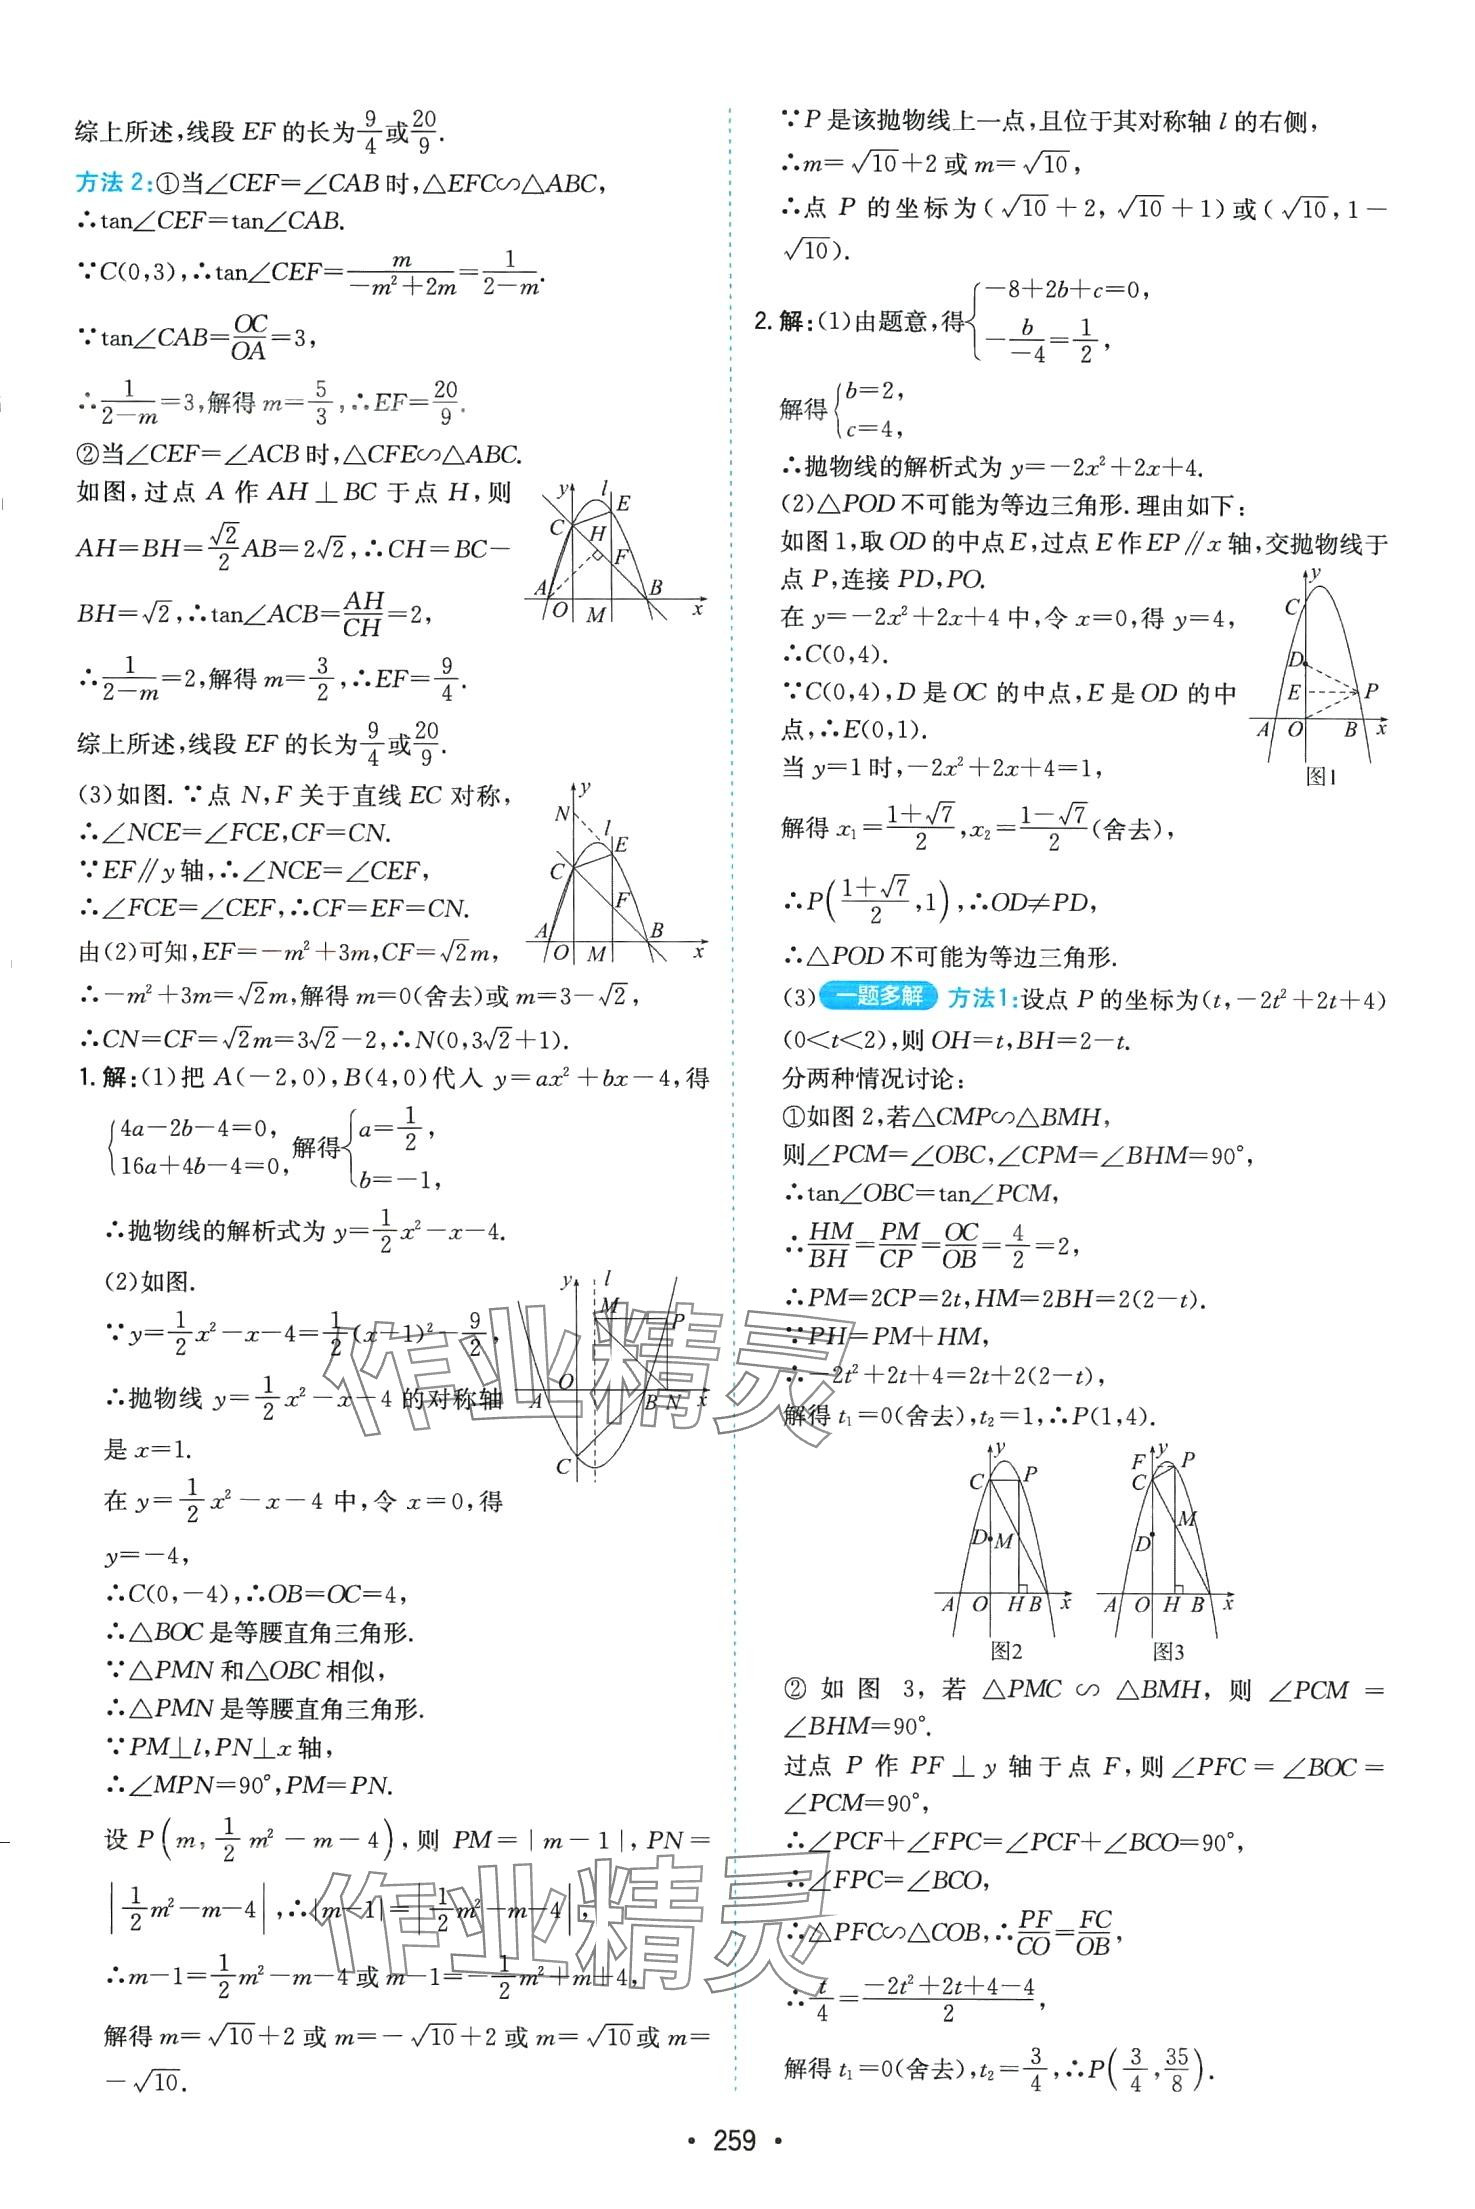 综上所述,线段 EF 的长为9/4或20/9.
方法 2:①当∠CEF=∠CAB 时,△EFC∽△ABC,
∴tan∠CEF=tan∠CAB.
∵C(0,3),∴tan∠CEF=m/(-m²+2m)=1/(2-m).
∵tan∠CAB=OC/OA=3,
∴1/(2-m)=3,解得 m=5/3,∴EF=20/9.
②当∠CEF=∠ACB 时,△CFE∽△ABC.
如图,过点 A 作 AH⊥BC 于点 H,则
AH=BH=√2/2 AB=2√2,∴CH=BC-
BH=√2,∴tan∠ACB=AH/CH=2,
∴1/(2-m)=2,解得 m=3/2,∴EF=9/4.
y l E C H F A B O M x
综上所述,线段 EF 的长为9/4或20/9.
(3)如图.∵点 N,F 关于直线 EC 对称,
∴∠NCE=∠FCE,CF=CN.
∵EF∥y 轴,∴∠NCE=∠CEF,
∴∠FCE=∠CEF,∴CF=EF=CN.
由(2)可知,EF=-m²+3m,CF=√2m,
y N l E C F A B O M x
∴-m²+3m=√2m,解得 m=0(舍去)或 m=3-√2,
∴CN=CF=√2m=3√2-2,∴N(0,3√2+1).
1. 解:(1)把 A(-2,0),B(4,0)代入 y=ax²+bx-4,得
{4a-2b-4=0, 16a+4b-4=0, 解得{a=1/2, b=-1,
∴抛物线的解析式为 y=1/2x²-x-4.
(2)如图.
∵y=1/2x²-x-4=1/2(x-1)²-9/2,
∴抛物线 y=1/2x²-x-4 的对称轴
是 x=1.
y l M P O A B N x C
在 y=1/2x²-x-4 中,令 x=0,得
y=-4,
∴C(0,-4),∴OB=OC=4,
∴△BOC 是等腰直角三角形.
∵△PMN 和△OBC 相似,
∴△PMN 是等腰直角三角形.
∵PM⊥l,PN⊥x 轴,
∴∠MPN=90°,PM=PN.
设 P(m,1/2m²-m-4),则 PM=|m-1|,PN=
|1/2m²-m-4|,∴|m-1|=|1/2m²-m-4|,
∴m-1=1/2m²-m-4 或 m-1=-1/2m²+m+4,
解得 m=√10+2 或 m=-√10+2 或 m=√10 或 m=
-√10.
∵P 是该抛物线上一点,且位于其对称轴 l 的右侧,
∴m=√10+2 或 m=√10,
∴点 P 的坐标为(√10+2,√10+1)或(√10,1-
√10).
2. 解:(1)由题意,得{-8+2b+c=0, -b/-4=1/2,
解得{b=2, c=4,
∴抛物线的解析式为 y=-2x²+2x+4.
(2)△POD 不可能为等边三角形.理由如下:
如图 1,取 OD 的中点 E,过点 E 作 EP∥x 轴,交抛物线于
点 P,连接 PD,PO.
在 y=-2x²+2x+4 中,令 x=0,得 y=4,
∴C(0,4).
∵C(0,4),D 是 OC 的中点,E 是 OD 的中
点,∴E(0,1).
当 y=1 时,-2x²+2x+4=1,
y C D E P A O B x
图1
解得 x₁=(1+√7)/2,x₂=(1-√7)/2(舍去),
∴P((1+√7)/2,1),∴OD≠PD,
∴△POD 不可能为等边三角形.
(3)一题多解 方法 1:设点 P 的坐标为(t,-2t²+2t+4)
(0<t<2),则 OH=t,BH=2-t.
分两种情况讨论:
①如图 2,若△CMP∽△BMH,
则∠PCM=∠OBC,∠CPM=∠BHM=90°,
∴tan∠OBC=tan∠PCM,
∴HM/BH=PM/CP=OC/OB=4/2=2,
∴PM=2CP=2t,HM=2BH=2(2-t).
∵PH=PM+HM,
∴-2t²+2t+4=2t+2(2-t),
解得 t₁=0(舍去),t₂=1,∴P(1,4).
y C P D M A O H B x
图2
y F P C M D A O H B x
图3
②如图 3,若△PMC∽△BMH,则∠PCM=
∠BHM=90°.
过点 P 作 PF⊥y 轴于点 F,则∠PFC=∠BOC=
∠PCM=90°,
∴∠PCF+∠FPC=∠PCF+∠BCO=90°,
∴∠FPC=∠BCO,
∴△PFC∽△COB,∴PF/CO=FC/OB,
∴t/4=(-2t²+2t+4-4)/2,
解得 t₁=0(舍去),t₂=3/4,∴P(3/4,35/8).
作业精灵
作业精灵
• 259 •